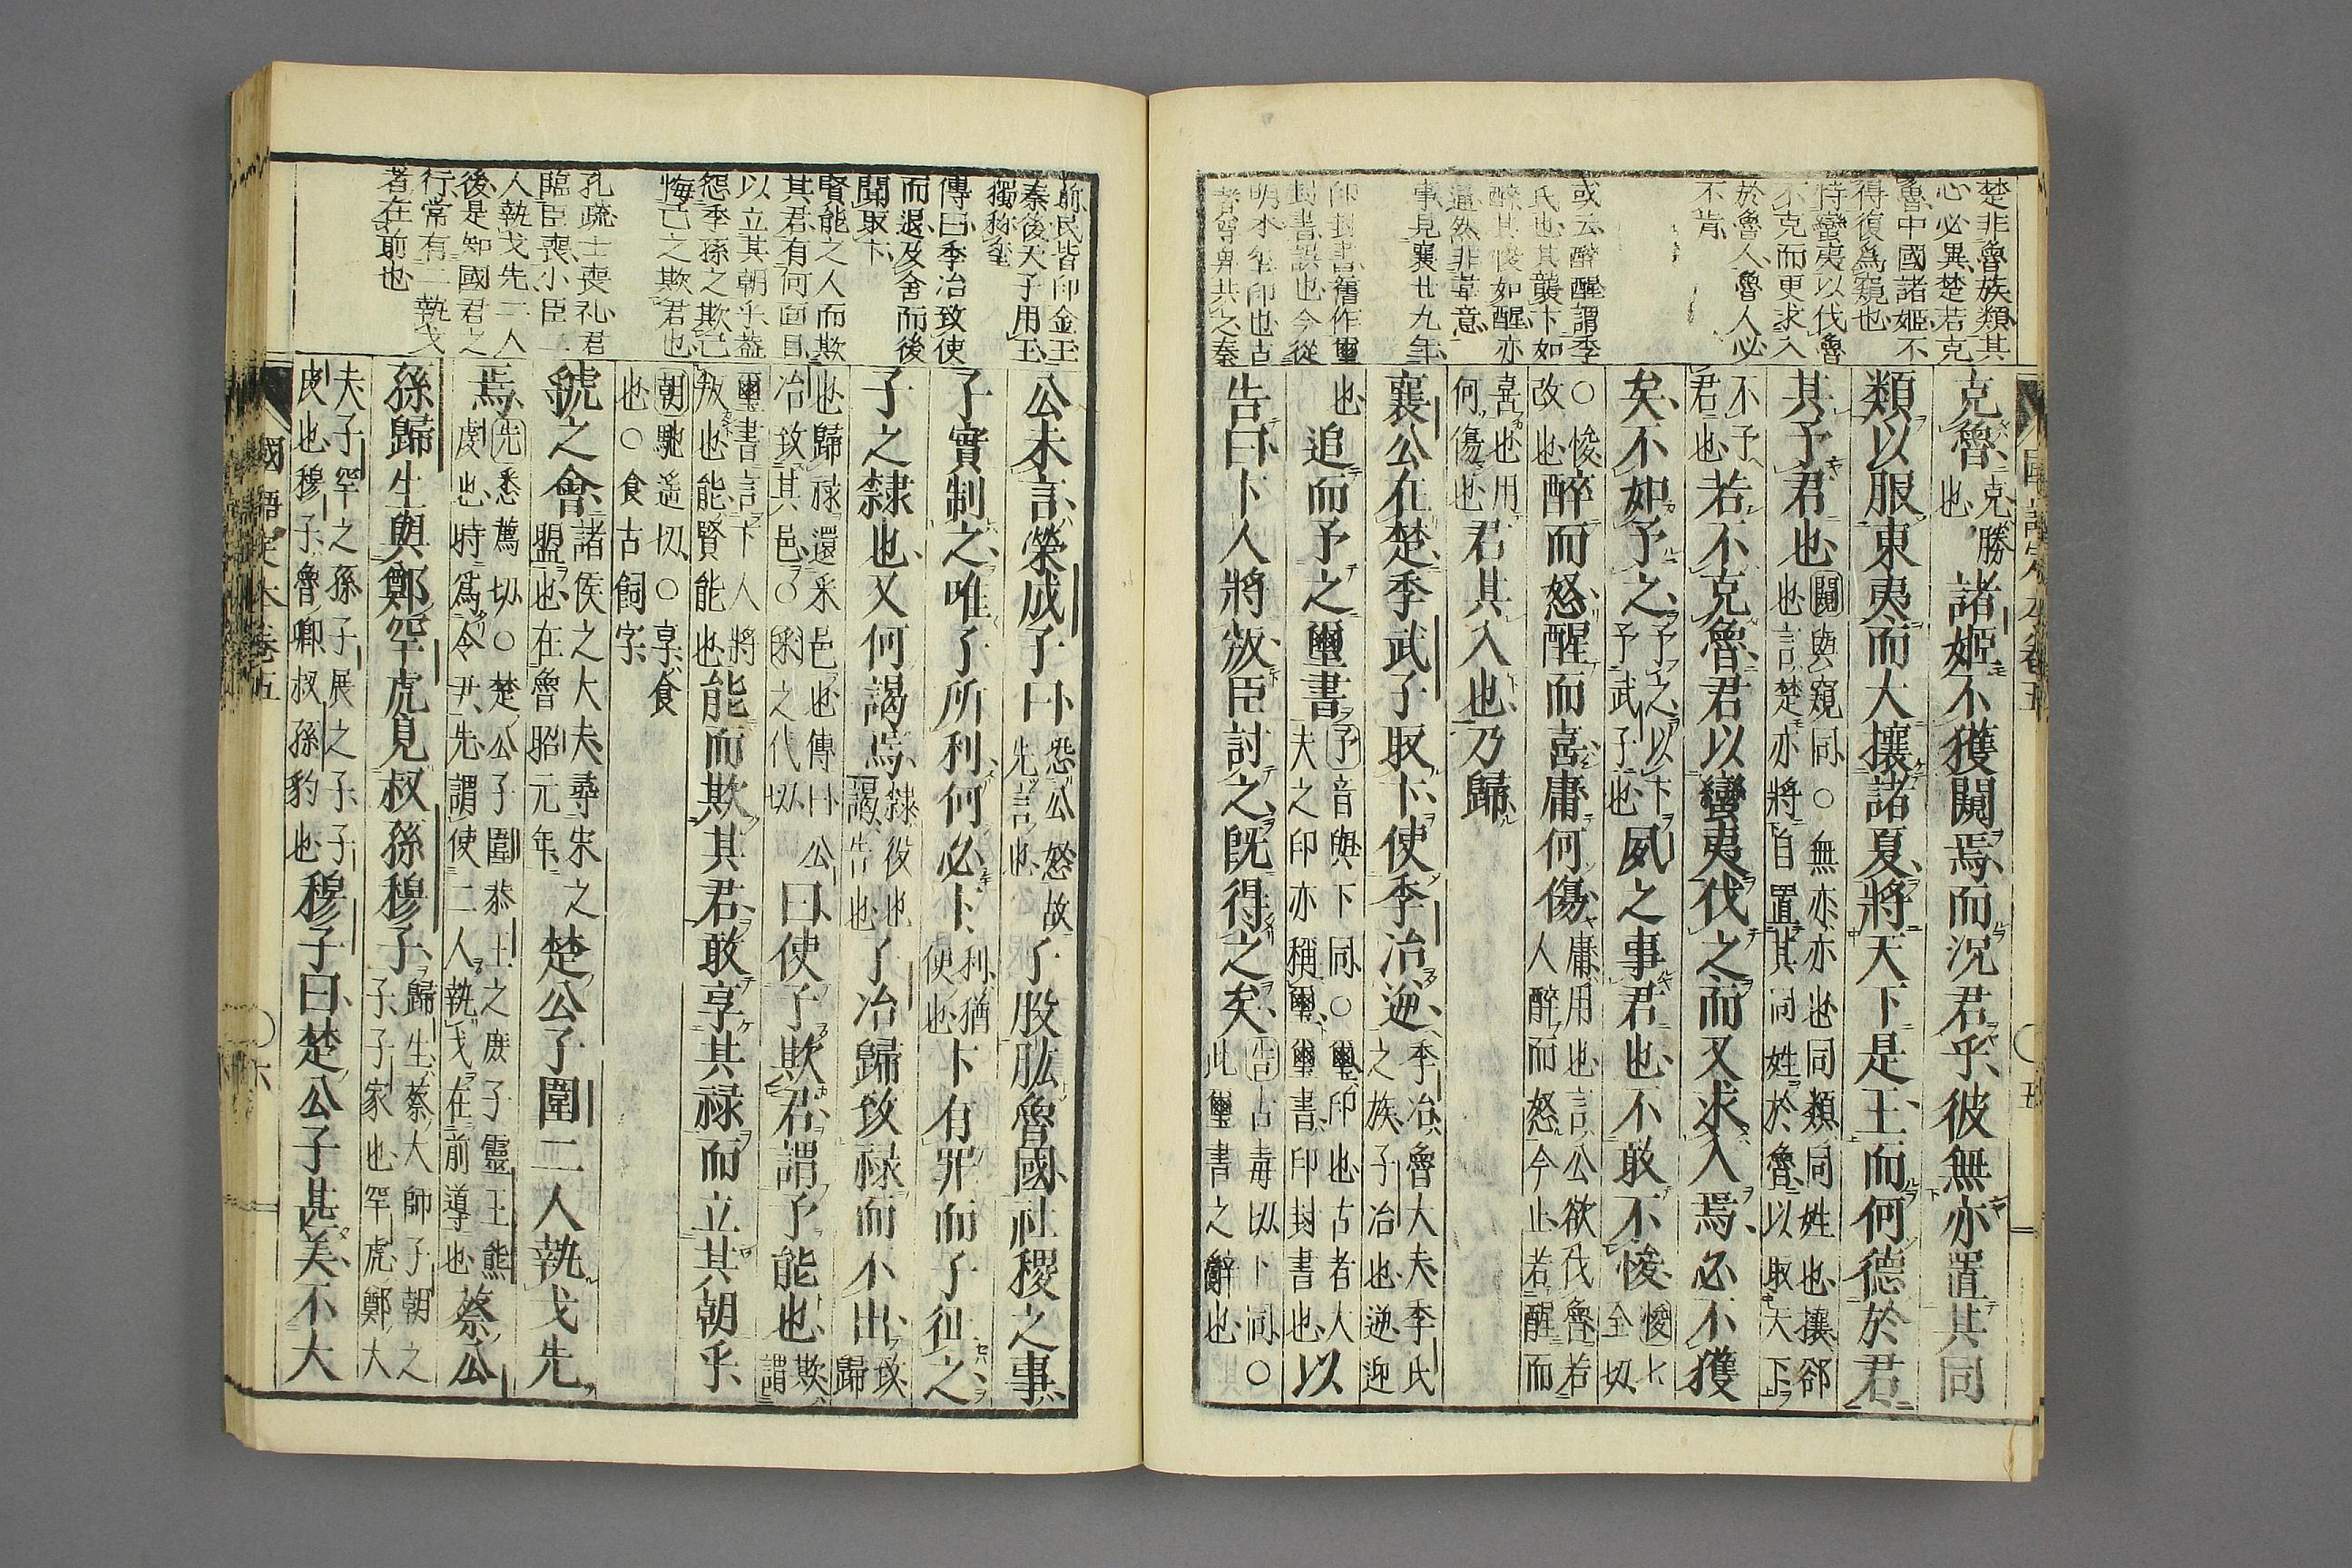 楚非魯族類其
心必異楚若克
魯中國諸姬不
得復爲窺也
恃蠻夷以伐魯
不克而更求入
於魯人魯人必
不肯
或云醉醒謂季
氏也其襲卞如
醉其悛如醒亦
通然非韋意
事見襄廿九年
印封書舊作璽
封書誤也今從
明本璽印也古
者尊卑共之秦
克魯克勝也諸姬不獲闚焉而況君乎彼無亦置其同
類以服東夷而大攘諸夏將天下是王而何德於君
其予君也闚與窺同○無亦亦也同類同姓也攘郤也言楚亦將自置其同姓於魯以取天下
不予君也若不克魯君以蠻夷伐之而又求入焉必不獲
矣不如予之予之以卞予武子也夙之事君也不敢不悛悛七全切
○悛改也醉而怒醒而喜庸何傷庸用也言公欲伐魯若人醉而怒今止若醒而
喜也用何傷也君其入也乃歸
襄公在楚季武子取卞使季冶逆季冶魯大夫季氏之族子冶也逆迎
也追而予之璽書予音與下同○璽印也古者大夫之印亦稱璽璽書印封書也以
告曰卞人將叛臣討之既得之矣告古毒切下同○此璽書之辭也
前民皆印金玉
秦後天子用玉
獨称璽
傳曰季冶致使
而退及舍而後
聞取卞
賢能之人而欺
其君有何面目
以立其朝乎蓋
怨季孫之欺己
悔己之欺君也
孔疏士喪礼君
臨臣喪小臣二
人執戈先二人
後是知國君之
行常有二執戈
者在前也
公未言榮成子曰恐公怒故先言也子股肱魯國社稷之事
子實制之唯子所利何必卞利猶便也卞有罪而子征之
子之隸也又何謁焉隸役也謁告也子冶歸致祿而不出致歸
也歸祿還采邑也傳曰公冶致其邑○采之代切曰使予欺君謂予能也欺謂
璽書言卞人將叛也能賢能也能而欺其君敢享其祿而立其朝乎
朝馳遥切○享食也○食古飼字
虢之會諸侯之大夫尋宋之盟也在魯昭元年楚公子圍二人執戈先
焉先悉薦切○楚公子圍恭王之庶子靈王熊虔也時爲令尹先謂使二人執戈在前導也蔡公
孫歸生與鄭罕虎見叔孫穆子歸生蔡大師子朝之子子家也罕虎鄭大
夫子罕之孫子展之子子皮也穆子魯卿叔孫豹也穆子曰楚公子甚美不大
國語定本卷五
六